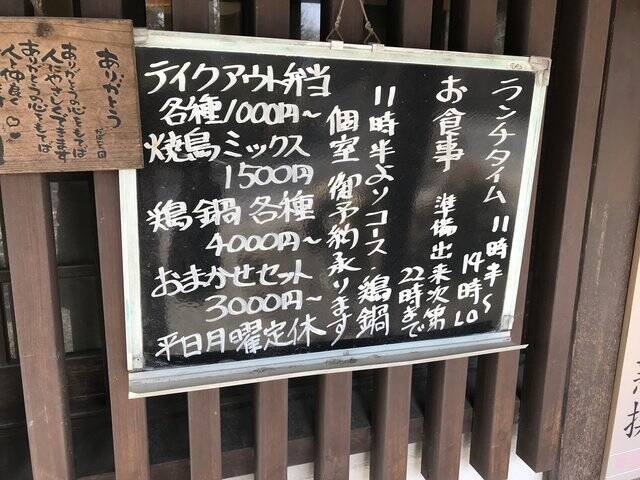 ランチタイム 11時半〜
14時LO
お食事 準備出来次第
22時まで
11時半よりコース・鶏鍋
個室御予約承ります
テイクアウト弁当
各種1000円〜
焼鳥ミックス
1500円
鶏鍋各種
4000円〜
おまかせセット
3000円〜
平日月曜定休
ありがとう
ありがとうの心をもてば
人にやさしくできます
ありがとう心をもてば
人と仲良く